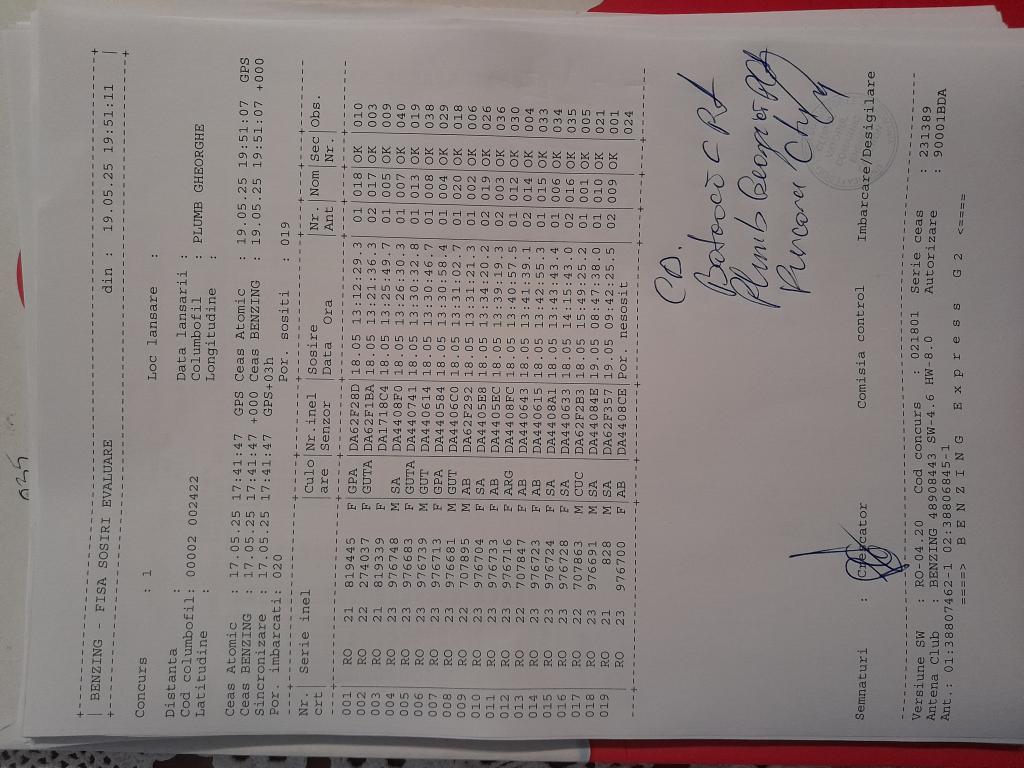 BENZING - FISA SOSIRI EVALUARE din : 19.05.25 19:51:11
Concurs : 1 Loc lansare :
Distanta : Data lansarii :
Cod columbofil: 00002 002422 Columbofil : PLUMB GHEORGHE
Latitudine : Longitudine :
Ceas Atomic : 17.05.25 17:41:47 GPS Ceas Atomic : 19.05.25 19:51:07 GPS
Ceas BENZING : 17.05.25 17:41:47 +000 Ceas BENZING : 19.05.25 19:51:07 +000
Sincronizare : 17.05.25 17:41:47 GPS+03h
Por. imbarcati: 020 Por. sositi : 019
Nr Serie inel Culo Nr inel Sosire Nr Nom Sec Obs.
crt are Senzor Data Ora Ant Nr.
001 RO 21 819445 F GPA DA62F28D 18.05 13:12:29.3 01 018 OK 010
002 RO 22 274037 F GUTA DA62F1BA 18.05 13:21:36.3 02 017 OK 003
003 RO 21 819339 F DA1718C4 18.05 13:25:49.7 01 005 OK 009
004 RO 23 976748 M SA DA4408F0 18.05 13:26:30.3 01 007 OK 040
005 RO 23 976683 F GUTA DA440741 18.05 13:30:32.8 01 013 OK 019
006 RO 23 976739 M GUT DA440614 18.05 13:30:46.7 01 008 OK 038
007 RO 23 976713 F GPA DA440584 18.05 13:30:58.4 01 004 OK 029
008 RO 23 976681 M GUT DA4406C0 18.05 13:31:02.7 01 020 OK 018
009 RO 22 707895 M AB DA62F292 18.05 13:31:21.3 01 002 OK 006
010 RO 23 976704 F SA DA4405E8 18.05 13:34:20.2 02 019 OK 026
011 RO 23 976733 F AB DA4405EC 18.05 13:39:19.3 02 003 OK 036
012 RO 23 976716 F ARG DA4408FC 18.05 13:40:57.5 01 012 OK 030
013 RO 22 707847 F AB DA440643 18.05 13:41:39.1 02 014 OK 004
014 RO 23 976723 F AB DA440615 18.05 13:42:55.3 01 015 OK 033
015 RO 23 976724 F SA DA4408A1 18.05 13:43:43.4 01 006 OK 034
016 RO 23 976728 F SA DA440633 18.05 14:15:43.0 02 016 OK 035
017 RO 22 707863 M CUC DA62F2B3 18.05 15:49:25.2 01 001 OK 005
018 RO 23 976691 M SA DA44084E 19.05 08:47:38.0 01 010 OK 021
019 RO 21 828 M SA DA62F357 19.05 09:42:25.5 02 009 OK 001
RO 23 976700 F AB DA4408CE Por. nesosit 024
Plumb
Semnaturi : Crescator Comisia control Imbarcare/Desigilare
Versiune SW : RO-04.20 Cod concurs : 021801 Serie ceas : 231389
Antena Club : BENZING 48908443 SW-4.6 HW-8.0 Autorizare : 90001BDA
Ant.: 01:38807462-1 02:38806845-1
====> B E N Z I N G E x p r e s s G 2 <====